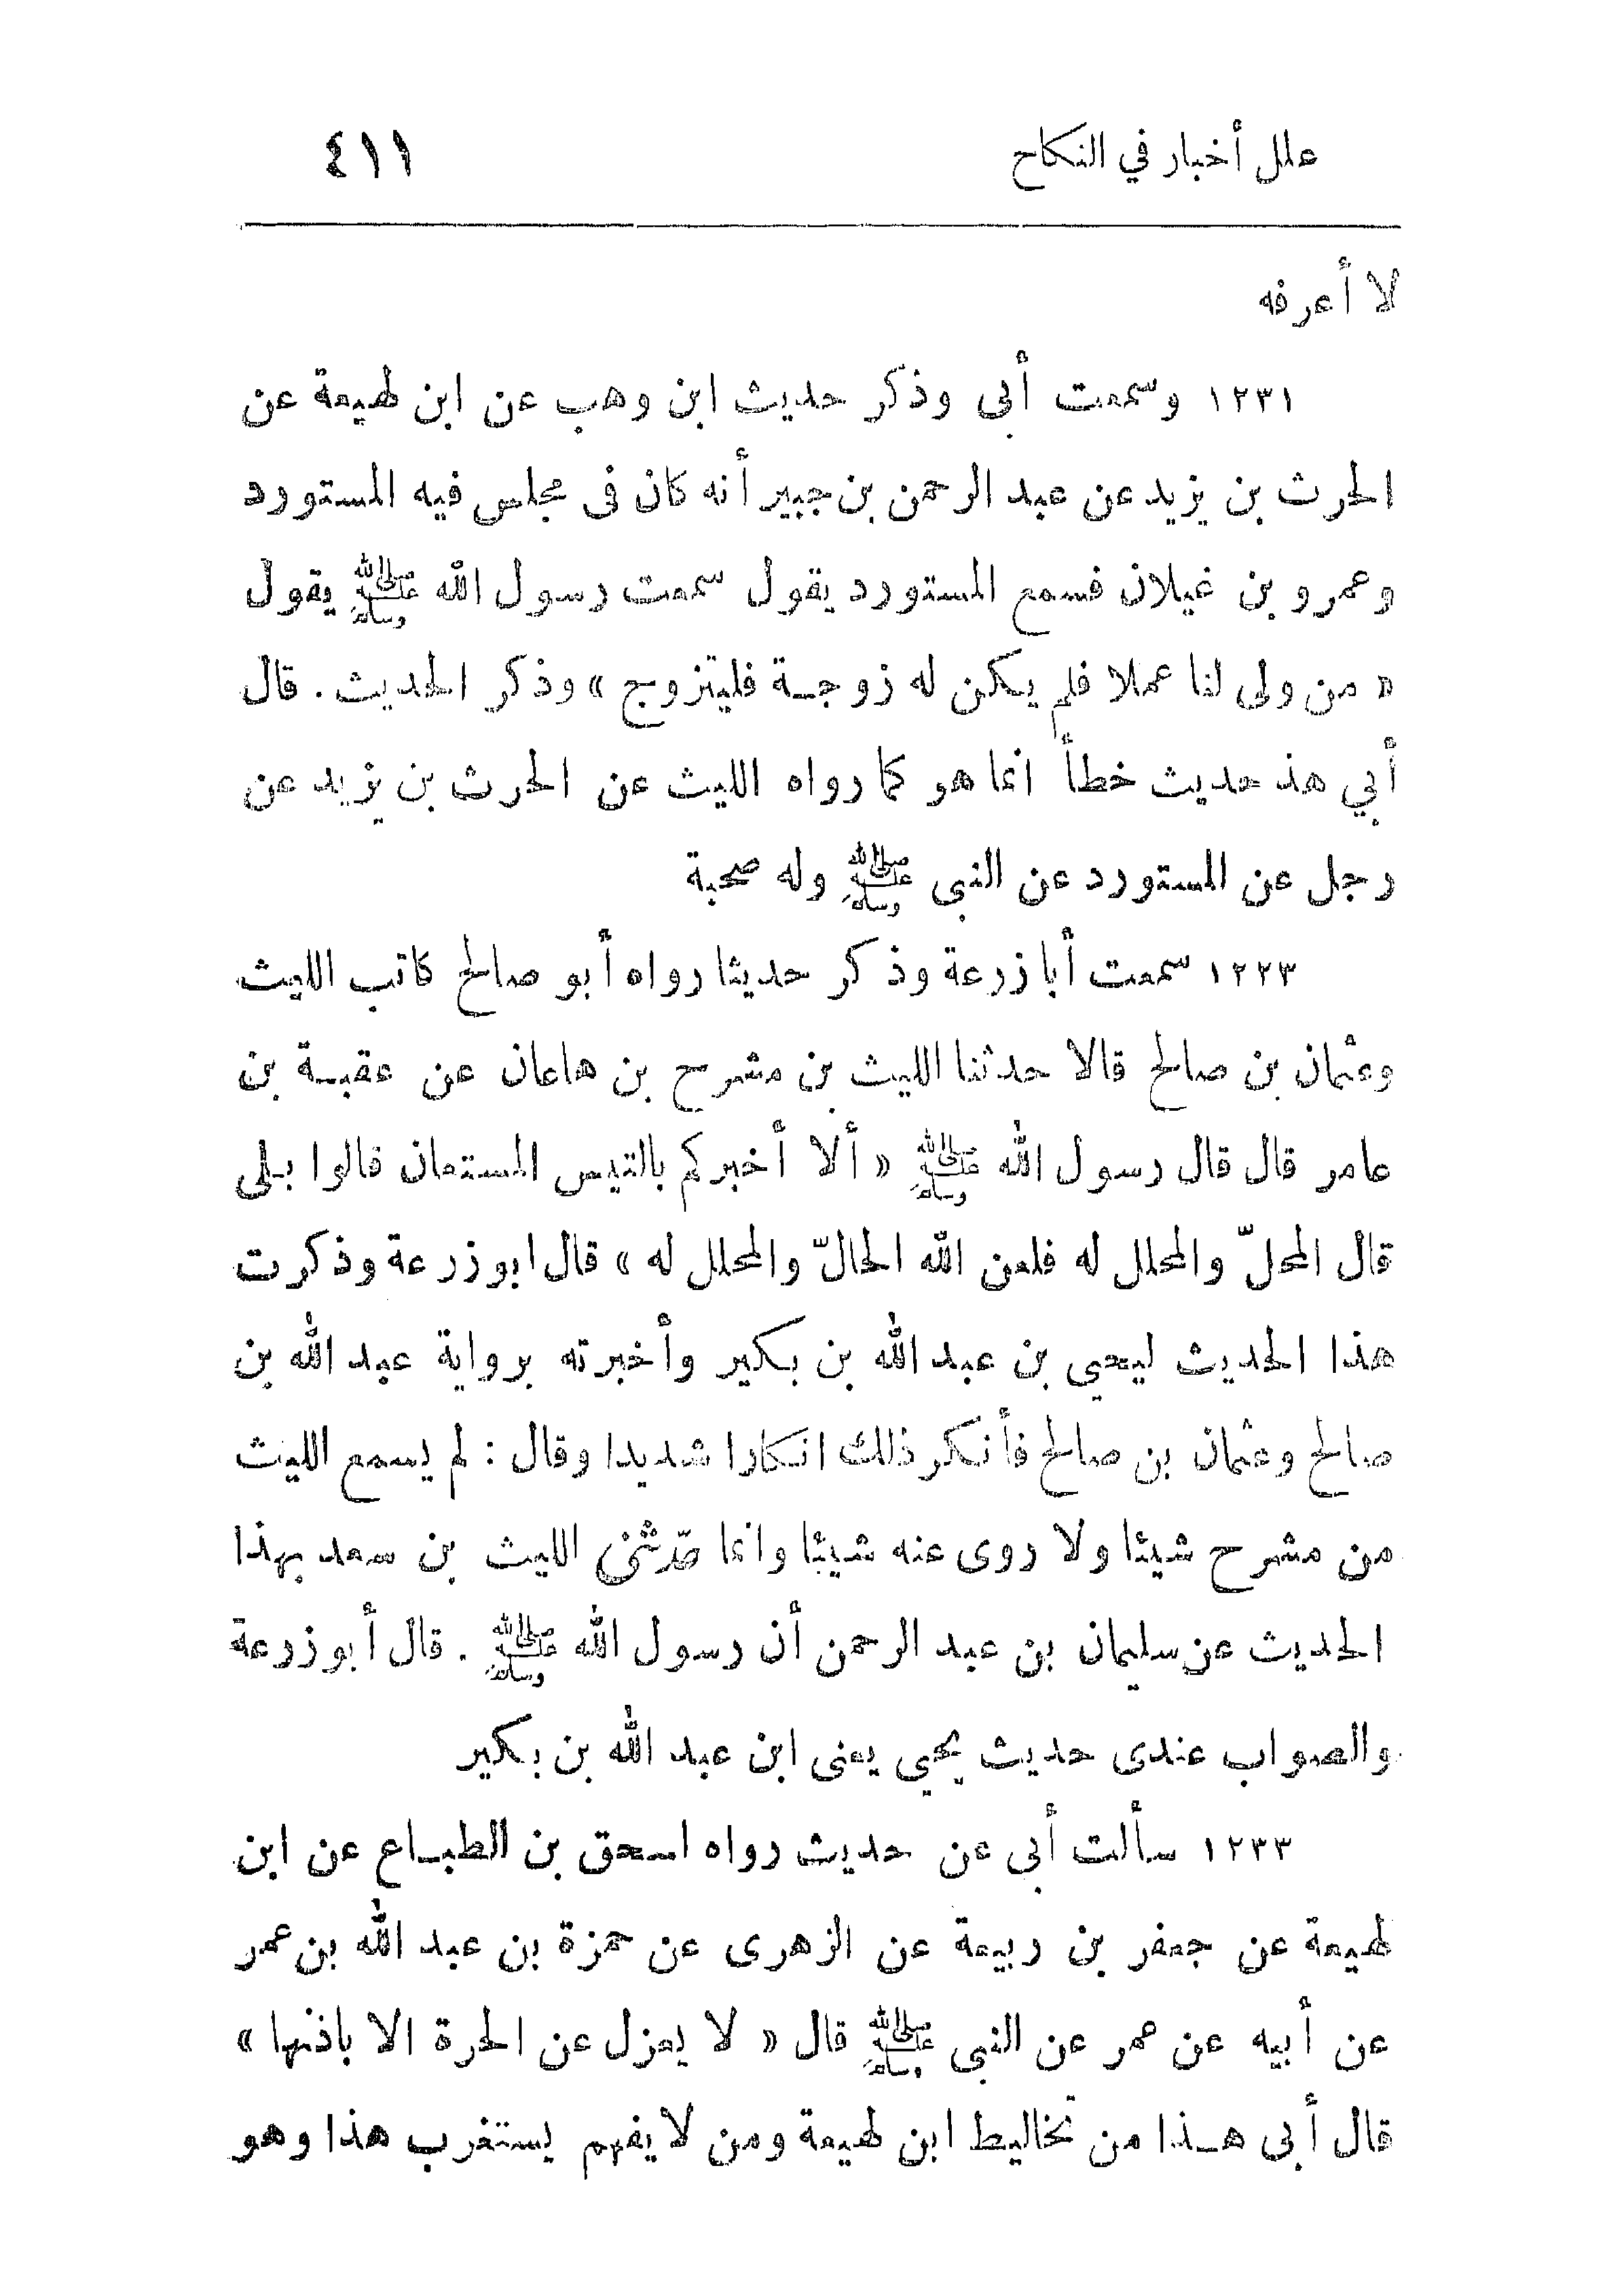 علل أخبار في النكاح ٤١١
لا أعرفه
١٢٣١ وسمعت أبى وذكر حديث ابن وهب عن ابن لهيعة عن
الحرث بن يزيد عن عبد الرحمن بن جبير أنه كان فى مجلس فيه المستورد
وعمرو بن غيلان فسمع المستورد يقول سمعت رسول الله ﷺ يقول
« من ولى لنا عملا فلم يكن له زوجة فليتزوج » وذكر الحديث . قال
أبي هذ حديث خطأ انما هو كما رواه الليث عن الحرث بن يزيد عن
رجل عن المستورد عن النبى ﷺ وله صحبة
١٢٢٣ سمعت أبا زرعة وذكر حديثا رواه أبو صالح كاتب الليث
وعثمان بن صالح قالا حدثنا الليث بن مشرح بن هاعان عن عقبة بن
عامر قال قال رسول الله ﷺ « ألا أخبركم بالتيس المستعان قالوا بلى
قال المحلّ والمحلل له فلعن الله الحالّ والمحلل له » قال ابو زرعة وذكرت
هذا الحديث ليحيي بن عبد الله بن بكير وأخبرته برواية عبد الله بن
صالح وعثمان بن صالح فأنكر ذلك انكارا شديدا وقال : لم يسمع الليث
من مشرح شيئا ولا روى عنه شيئا وانما حدّثنى الليث بن سعد بهذا
الحديث عن سليمان بن عبد الرحمن أن رسول الله ﷺ . قال أبو زرعة
والصواب عندى حديث يحيي يعنى ابن عبد الله بن بكير
١٢٣٣ سألت أبى عن حديث رواه اسحق بن الطباع عن ابن
لهيعة عن جعفر بن ربيعة عن الزهرى عن حمزة بن عبد الله بن عمر
عن أبيه عن عمر عن النبى ﷺ قال « لا يعزل عن الحرة الا باذنها »
قال أبى هذا من تخاليط ابن لهيعة ومن لا يفهم يستغرب هذا وهو